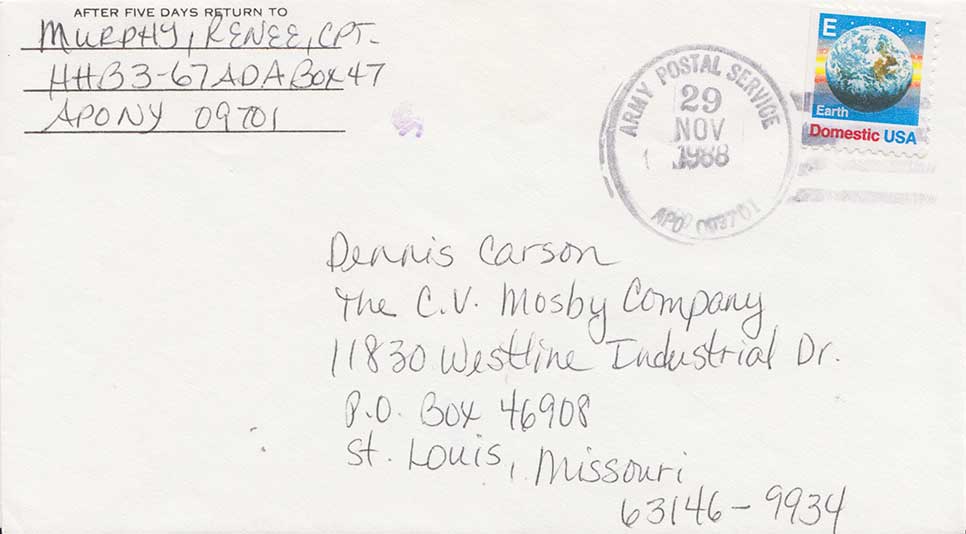 AFTER FIVE DAYS RETURN TO
MURPHY, RENEE, CPT.
HHB 3-67 ADA BOX 47
APO NY 09701
ARMY POSTAL SERVICE
29
NOV
1988
APO
E
Earth
Domestic USA
Dennis Carson
The C.V. Mosby Company
11830 Westline Industrial Dr.
P.O. Box 46908
St. Louis, Missouri
63146-9934